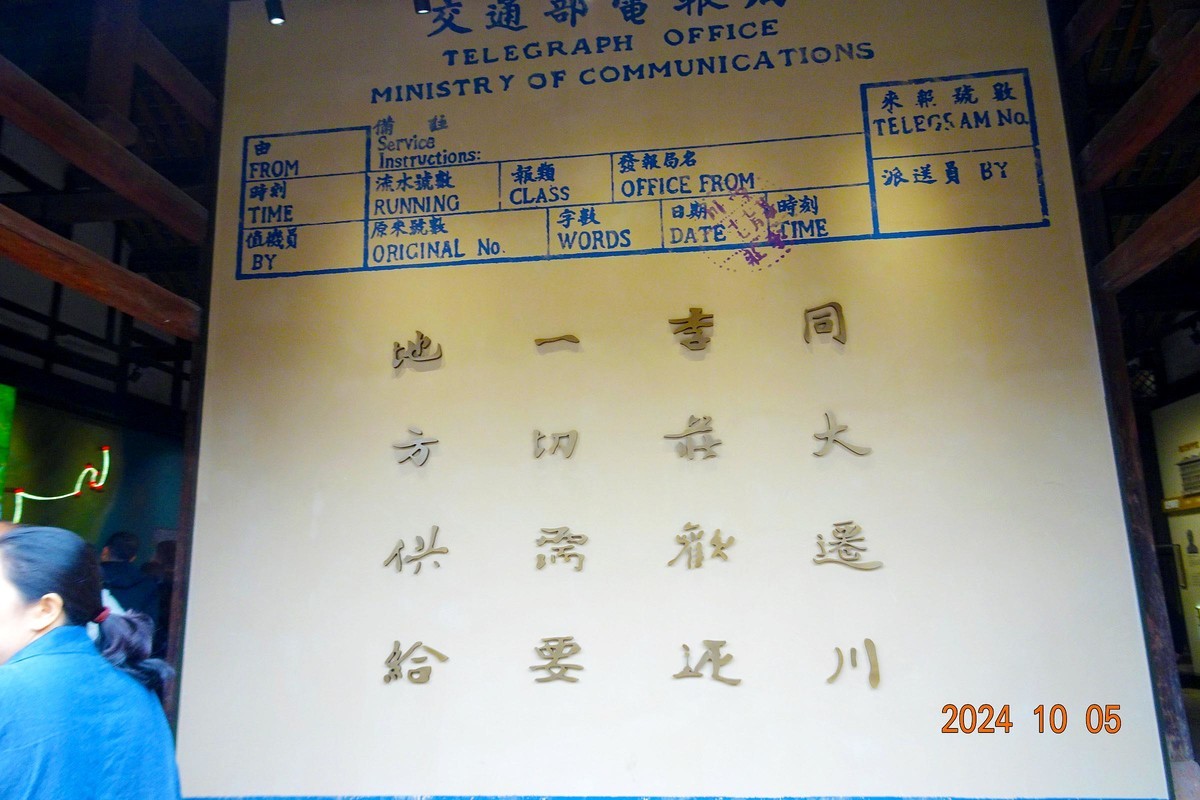 交通部電報局
TELEGRAPH OFFICE
MINISTRY OF COMMUNICATIONS
由
FROM
時刻
TIME
值機員
BY
備註
Service
Instructions:
流水號數
RUNNING
報類
CLASS
發報局名
OFFICE FROM
原來號數
ORIGINAL No.
字數
WORDS
日期
DATE
時刻
TIME
來報號數
TELEGRAM No.
派送員 BY
同大遷川
李莊歡迎
一切需要
地方供給
2024 10 05